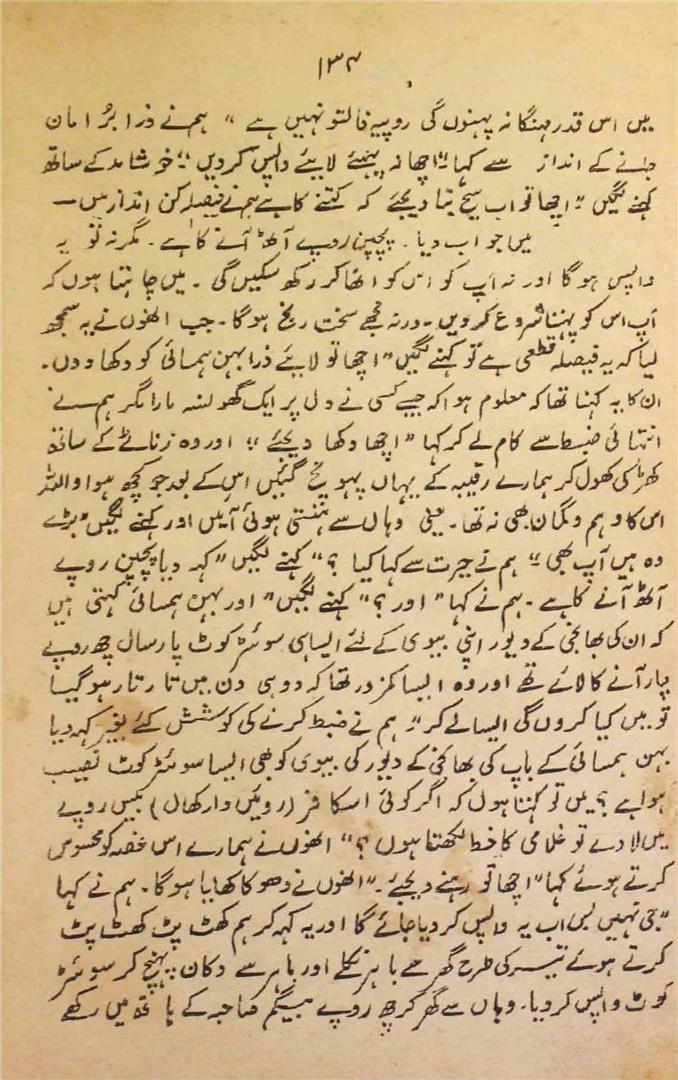 ۱۳۴
میں اس قدر مہنگا نہ پہنوں گی روپیہ فالتو نہیں ہے " ہم نے ذرا بُرا مان
جانے کے انداز سے کہا " اچھا نہ پہنئے لائیے واپس کردیں " خوشامد کے ساتھ
کہنے لگیں " اچھا تو اب سچ بتا دیجئے کہ کتنے کا ہے ہم نے فیصلہ کن انداز میں —
میں جواب دیا ۔ پچپن روپے آٹھ آنے کا ہے ۔ مگر نہ تو یہ
واپس ہوگا اور نہ آپ کو اس کو اٹھا کر رکھ سکیں گی ۔ میں چاہتا ہوں کہ
آپ اس کو پہننا شروع کردیں ۔ ورنہ مجھے سخت رنج ہوگا ۔ جب انھوں نے یہ سمجھ
لیا کہ یہ فیصلہ قطعی ہے تو کہنے لگیں " اچھا تو لائیے ذرا بہن ہمسائی کو دکھا دوں ۔
ان کا یہ کہنا تھا کہ معلوم ہوا کہ جیسے کسی نے دل پر ایک گھونسہ مارا مگر ہم نے
انتہائی ضبط سے کام لے کر کہا " اچھا دکھا دیجئے " اور وہ زناٹے کے ساتھ
کھڑکی کھول کر ہمارے رقیبہ کے یہاں پہونچ گئیں اس کے بعد جو کچھ ہوا واللہ
اس کا وہم وگمان بھی نہ تھا ۔ یعنی وہاں سے ہنستی ہوئی آئیں اور کہنے لگیں " بڑے
وہ ہیں آپ بھی " ہم نے حیرت سے کہا کیا ؟ " کہنے لگیں " کہہ دیا پچپن روپے
آٹھ آنے کا ہے ۔ ہم نے کہا " اور ؟ " کہنے لگیں " اور بہن ہمسائی کہتی ہیں
کہ ان کی بھانجی کے دیور اپنی بیوی کے لئے ایسا ہی سوئٹر کوٹ پارسال چھ روپے
چار آنے کا لائے تھے اور وہ ایسا کمزور تھا کہ دو ہی دن میں تار تار ہوگیا
تو میں کیا کروں گی ایسا لے کر " ہم نے ضبط کرنے کی کوشش کئے بغیر کہہ دیا
بہن ہمسائی کے باپ کی بھانجی کے دیور کی بیوی کو بھی ایسا سوئٹر کوٹ نصیب
ہوا ہے ؟ میں تو کہتا ہوں کہ اگر کوئی اسکا فر (روئیں دار کھال) بیس روپے
میں لادے تو غلامی کا خط لکھتا ہوں ؟ " انھوں نے ہمارے اس غصہ کو محسوس
کرتے ہوئے کہا " اچھا تو رہنے دیجئے ۔ " انھوں نے دھوکا کھایا ہوگا ۔ ہم نے کہا
" جی نہیں بس اب یہ واپس کردیا جائے گا اور یہ کہہ کر ہم کھٹ پٹ کھٹ پٹ
کرتے ہوئے تیر کی طرح گھر سے باہر نکلے اور باہر سے دکان پہنچ کر سوئٹر
کوٹ واپس کردیا ۔ وہاں سے گھر کر چھ روپے بیگم صاحبہ کے ہاتھ میں رکھے